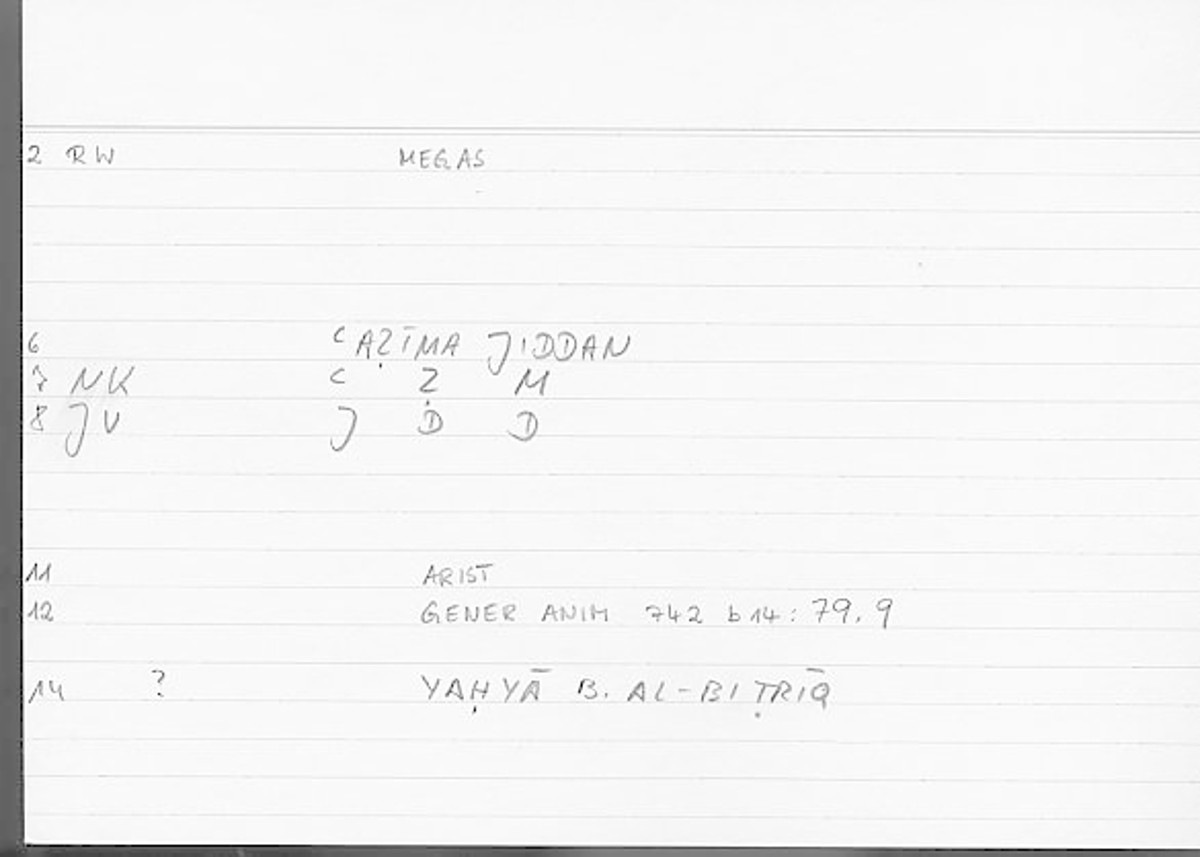 2 RW MEGAS
6 ʿAẒĪMA JIDDAN
7 NK ʿ Ẓ M
8 JV J D D
11 ARIST
12 GENER ANIM 742 b14: 79.9
14 ? YAḤYĀ B. AL-BIṬRĪQ